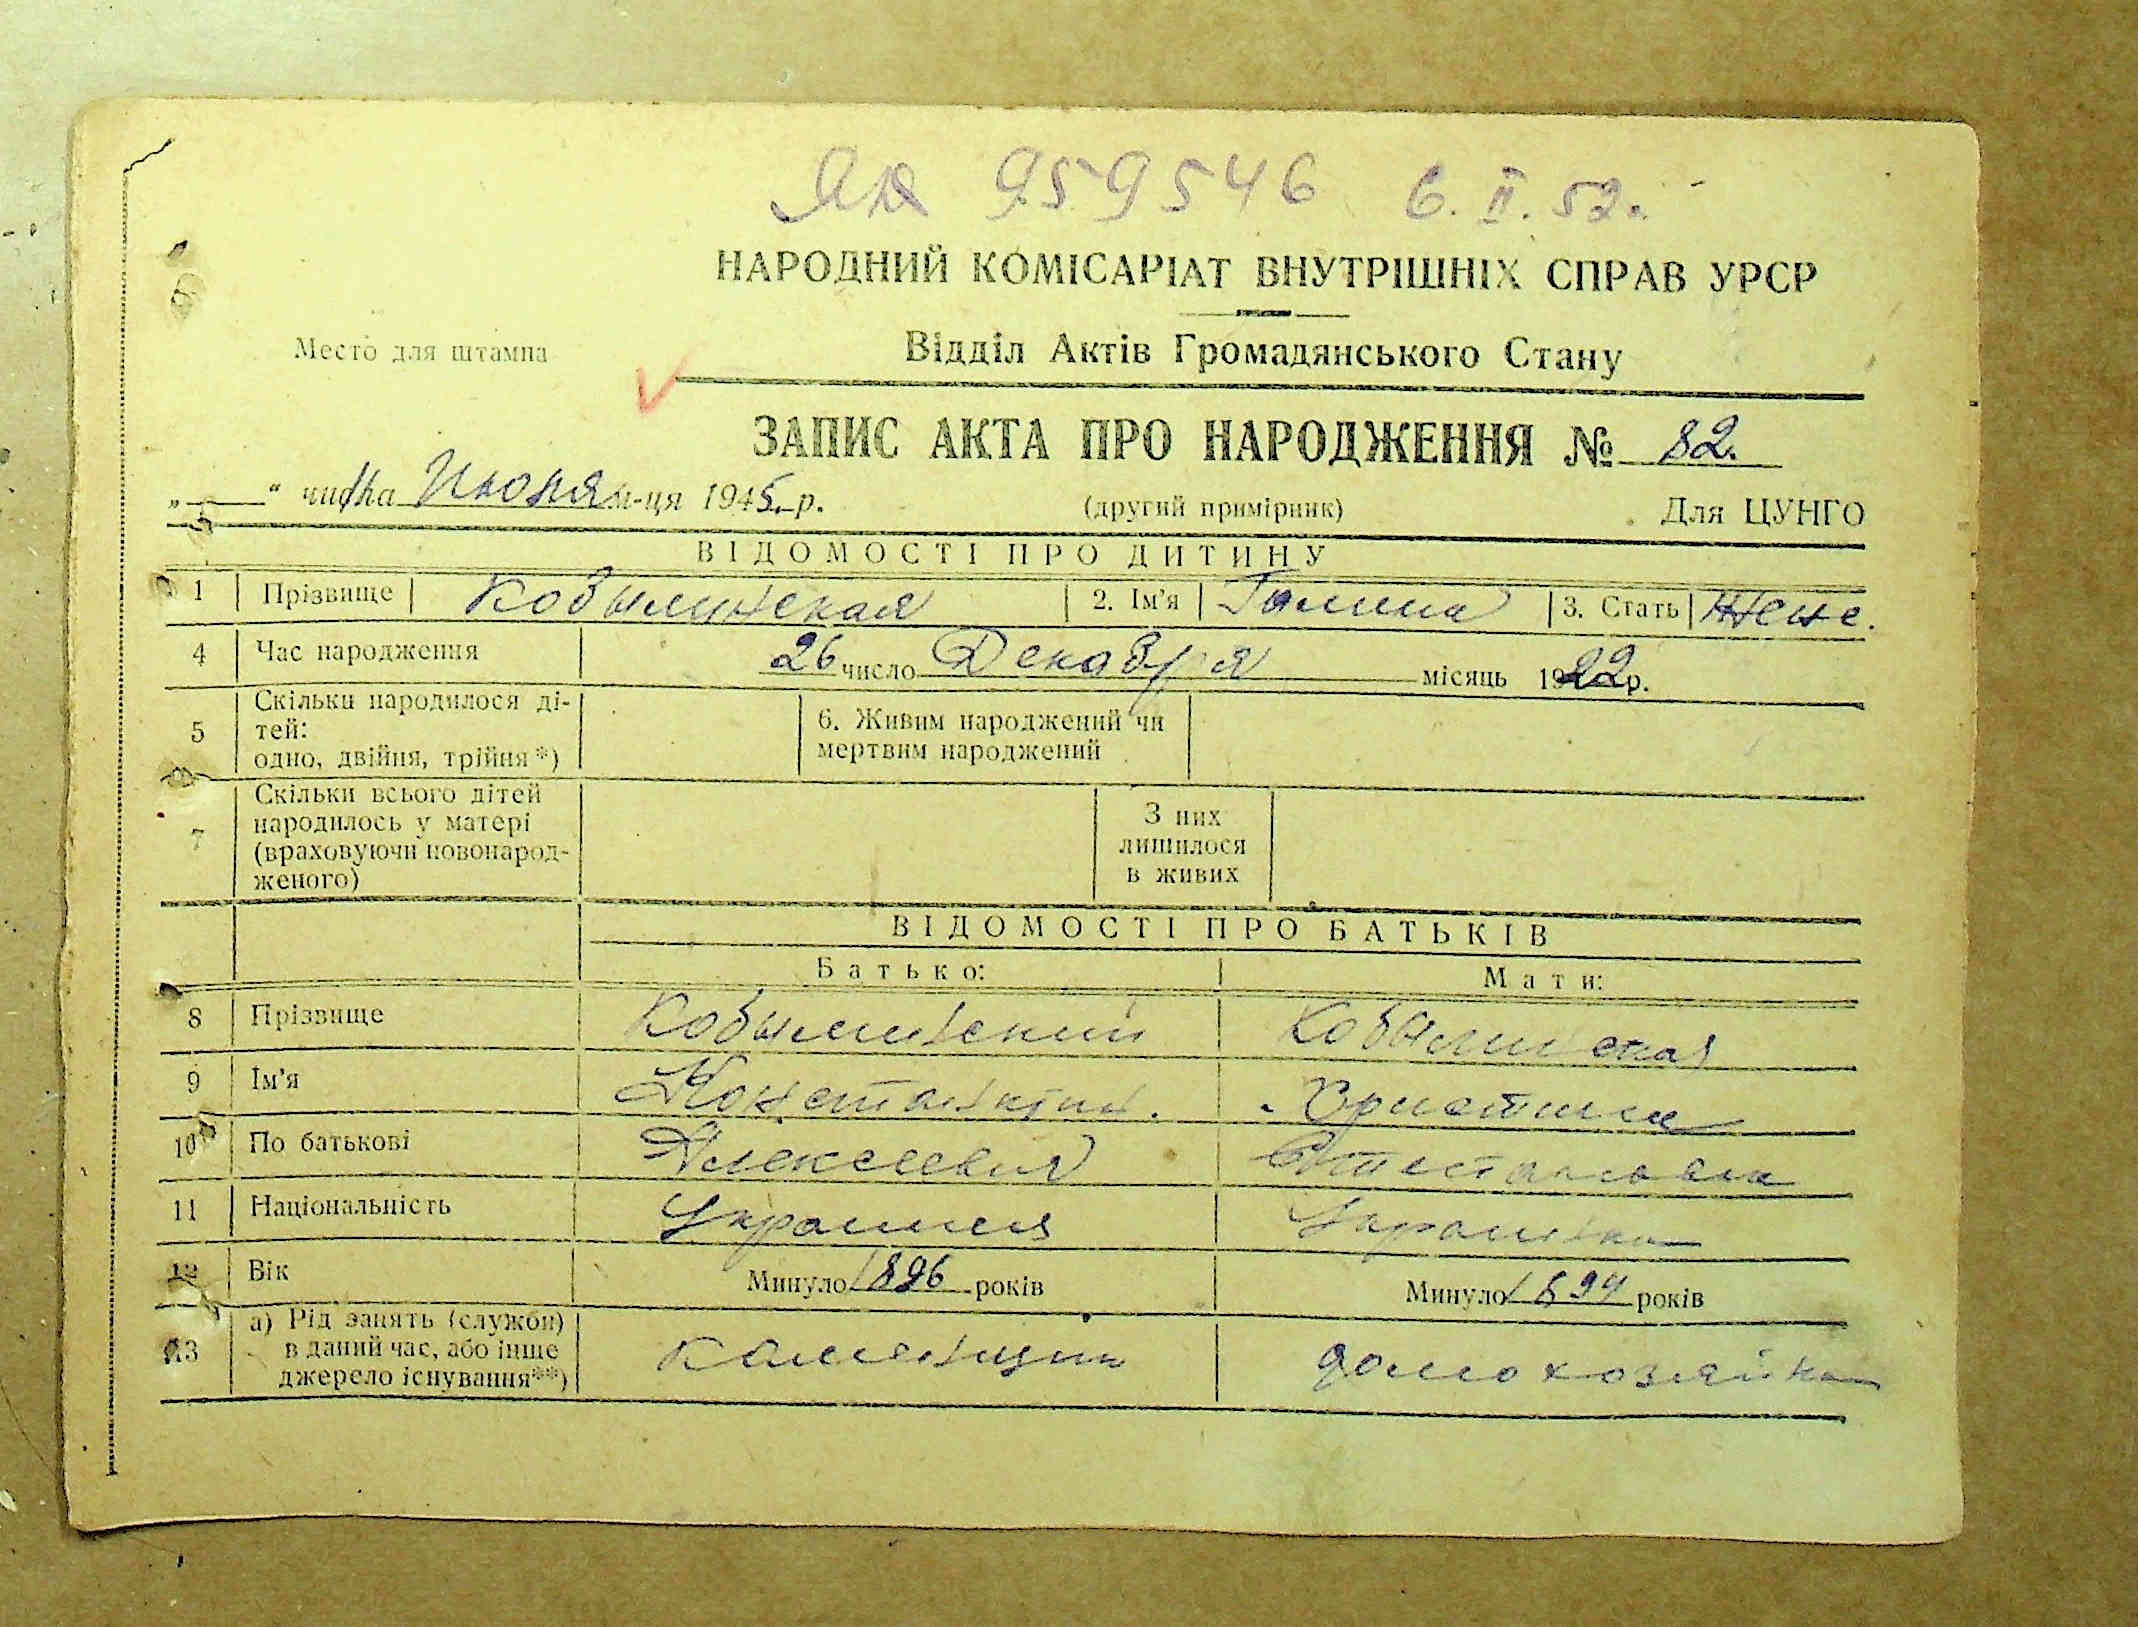 ЯД 959546 6.II.52.
НАРОДНИЙ КОМІСАРІАТ ВНУТРІШНІХ СПРАВ УРСР
Место для штампа
Відділ Актів Громадянського Стану
ЗАПИС АКТА ПРО НАРОДЖЕННЯ № 82.
„ “ числа Июня м-ця 1945 р. (другий примірник) Для ЦУНГО
ВІДОМОСТІ ПРО ДИТИНУ
1 Прізвище Кобылинская 2. Ім’я Галина 3. Стать Женс.
4 Час народження 26 число Декабря місяць 1922 р.
Скільки народилося ді-
5 тей: 6. Живим народжений чи
одно, двійня, трійня*) мертвим народжений
Скільки всього дітей
7 народилось у матері З них
(враховуючи новонарод- лишилося
женого) в живих
ВІДОМОСТІ ПРО БАТЬКІВ
Батько: Мати:
8 Прізвище Кобылинский Кобылинская
9 Ім’я Константин. Христина
10 По батькові Алексеевич Степановна
11 Національність Украинец Украинка
12 Вік Минуло 1896 років Минуло 1894 років
а) Рід занять (служби)
13 в даний час, або інше каменщик домохозяйка
джерело існування**)